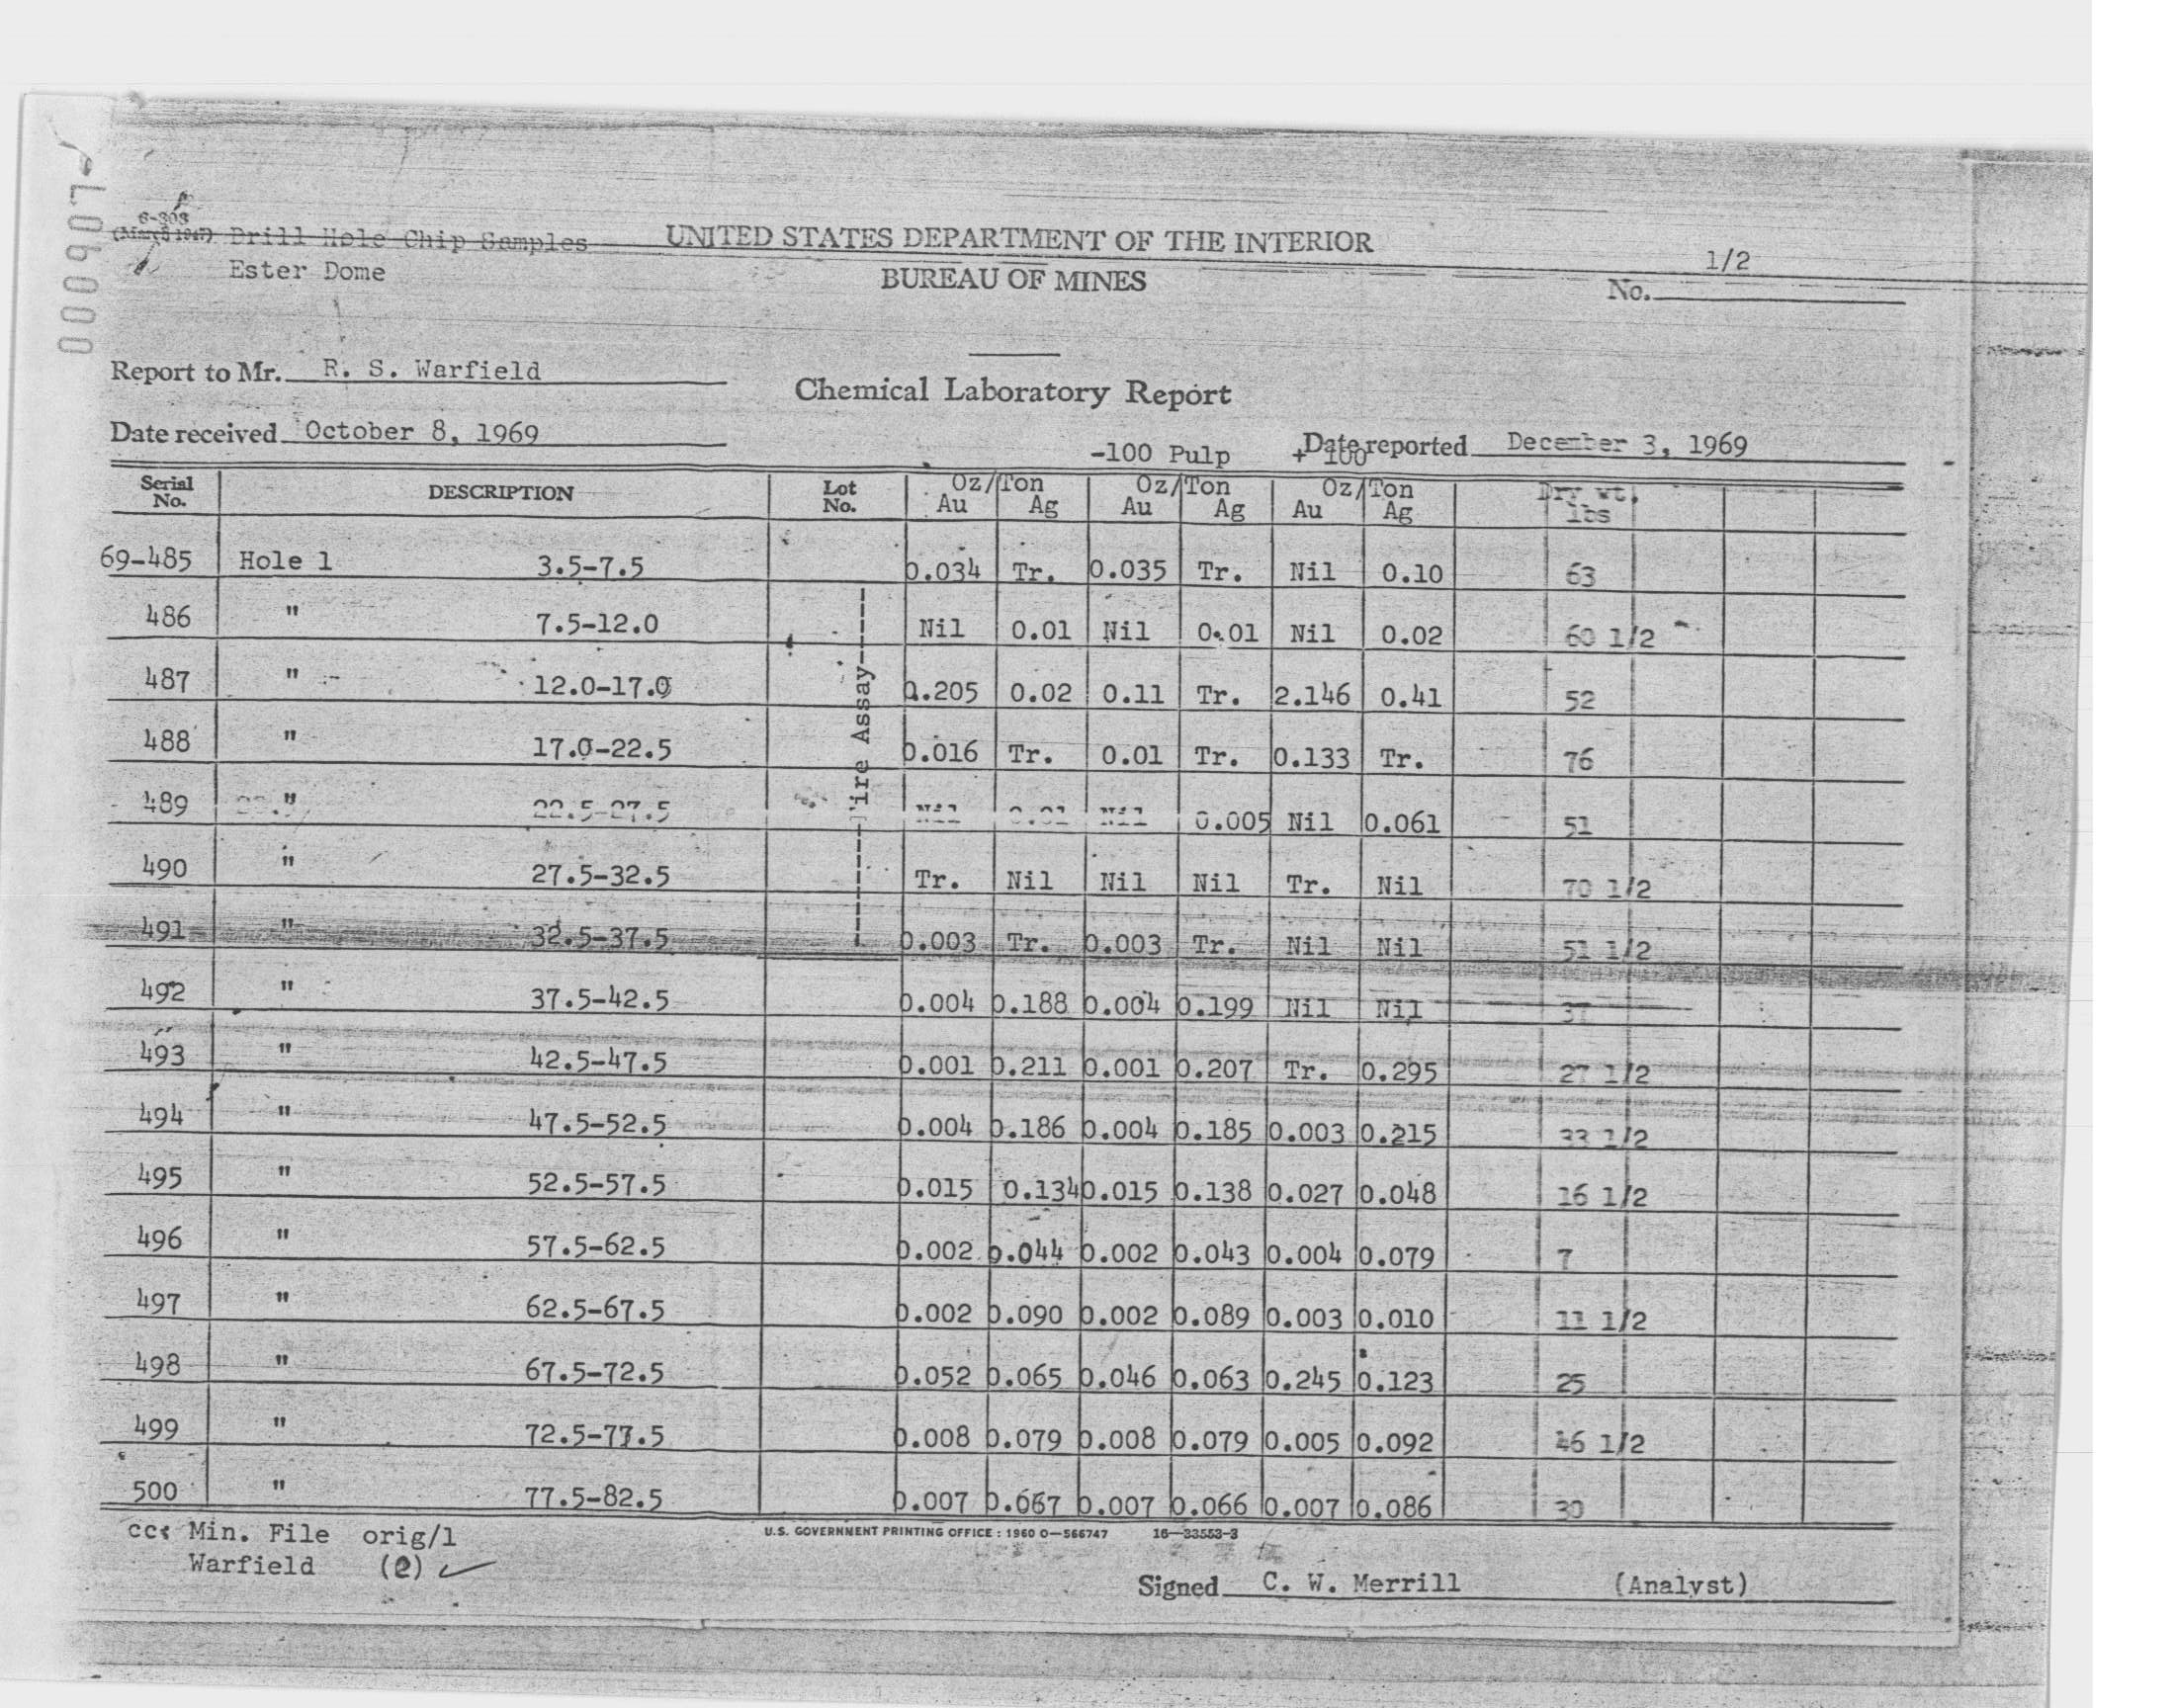 6-303
Drill Hole Chip Samples
UNITED STATES DEPARTMENT OF THE INTERIOR
1/2
Ester Dome
BUREAU OF MINES
No.
L06000
Report to Mr. R. S. Warfield
Chemical Laboratory Report
Date received October 8, 1969
-100 Pulp + 100 Date reported December 3, 1969
Serial No. DESCRIPTION Lot No. Oz/Ton Au Ag Oz/Ton Au Ag Oz/Ton Au Ag Dry wt. lbs
69-485 Hole 1 3.5-7.5 0.034 Tr. 0.035 Tr. Nil 0.10 63
486 " 7.5-12.0 Nil 0.01 Nil 0.01 Nil 0.02 60 1/2
487 " 12.0-17.0 .205 0.02 0.11 Tr. 2.146 0.41 52
488 " 17.0-22.5 0.016 Tr. 0.01 Tr. 0.133 Tr. 76
489 " 22.5-27.5 Nil Nil 0.005 Nil 0.061 51
490 " 27.5-32.5 Tr. Nil Nil Nil Tr. Nil 70 1/2
491 " 32.5-37.5 0.003 Tr. 0.003 Tr. Nil Nil 51 1/2
Fire Assay
492 " 37.5-42.5 0.004 0.188 0.004 0.199 Nil Nil 37
493 " 42.5-47.5 0.001 0.211 0.001 0.207 Tr. 0.295 27 1/2
494 " 47.5-52.5 0.004 0.186 0.004 0.185 0.003 0.215 33 1/2
495 " 52.5-57.5 0.015 0.134 0.015 0.138 0.027 0.048 16 1/2
496 " 57.5-62.5 0.002 0.044 0.002 0.043 0.004 0.079 7
497 " 62.5-67.5 0.002 0.090 0.002 0.089 0.003 0.010 11 1/2
498 " 67.5-72.5 0.052 0.065 0.046 0.063 0.245 0.123 25
499 " 72.5-77.5 0.008 0.079 0.008 0.079 0.005 0.092 1/2
500 " 77.5-82.5 0.007 0.067 0.007 0.066 0.007 0.086 30
cc: Min. File orig/1
U.S. GOVERNMENT PRINTING OFFICE : 1960 O—566747 16—33553-3
Warfield (2)
Signed C. W. Merrill (Analyst)